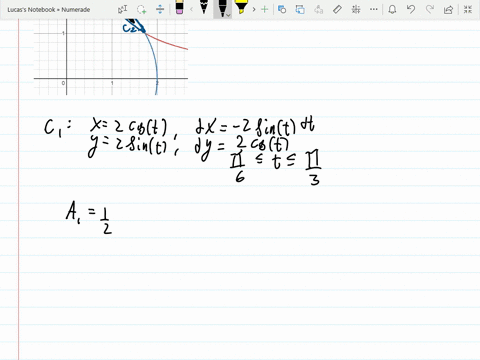 Lucas's Notebook + Numerade
C2
0
1
2
0
C₁: x = 2 cos(t), dx = -2 sin(t) dt
y = 2 sin(t), dy = 2 cos(t)
π/6 ≤ t ≤ π/3
A₁ = 1/2